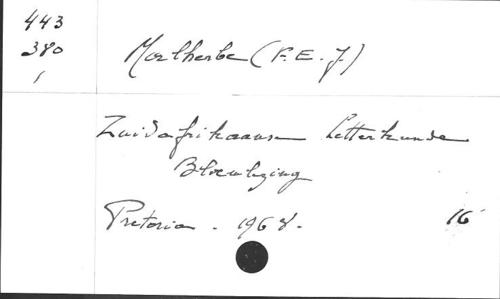 443
380
1
Malherbe (F. E. J)
Zuidafrikaanse Letterkunde
Bloemlezing
Pretoria. 1968.
16